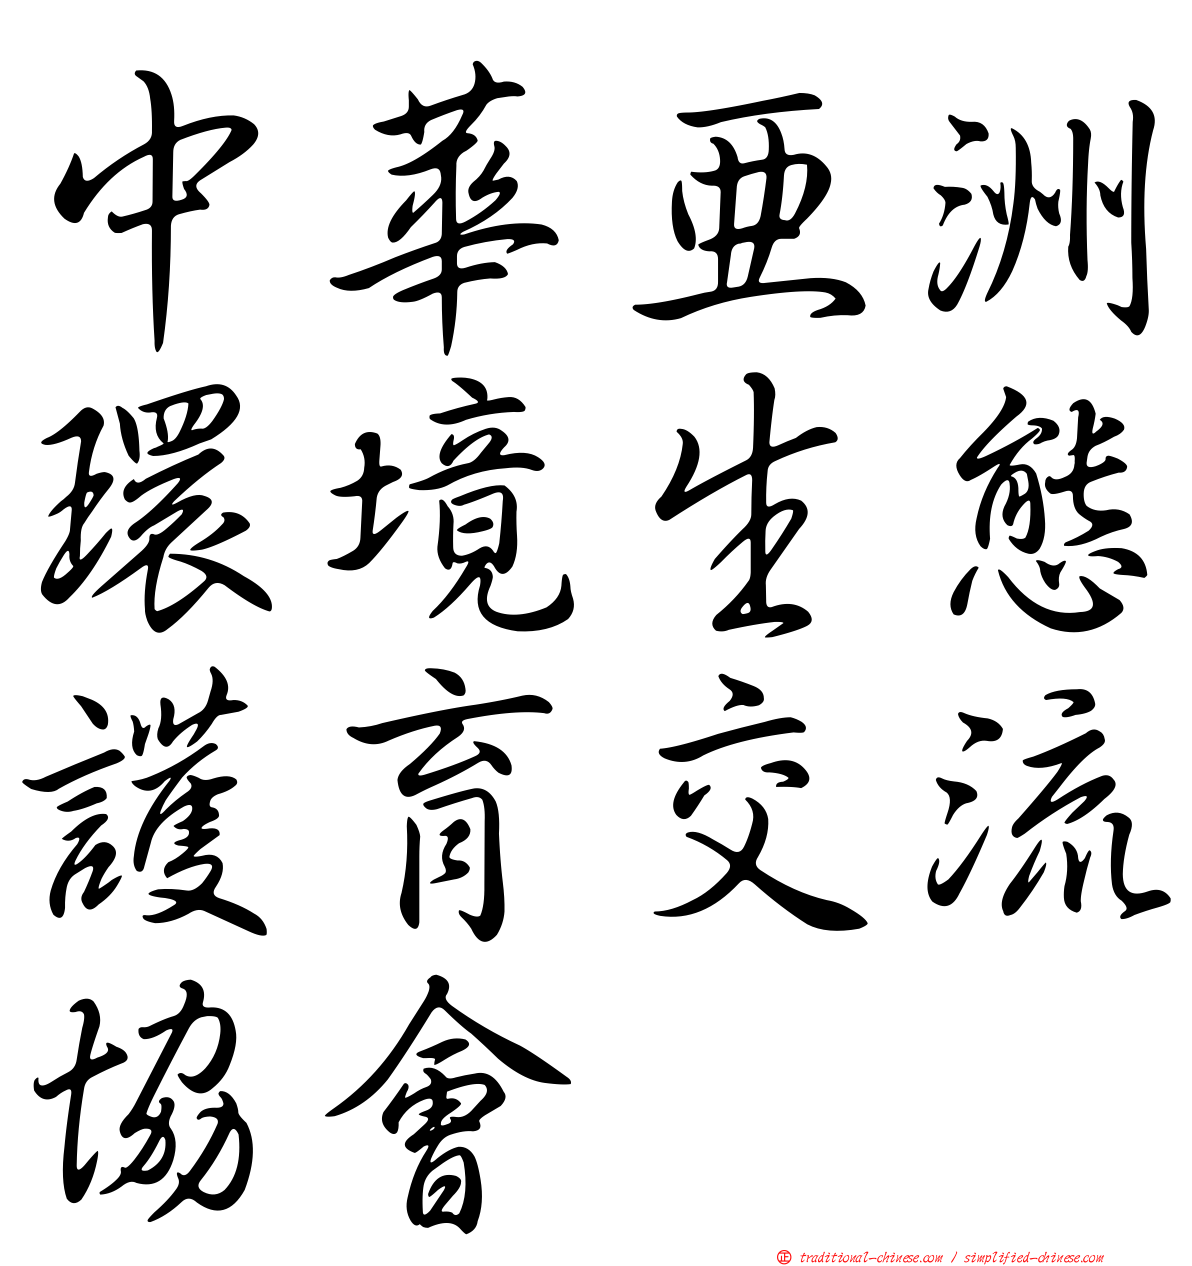 中華亞洲
環境生態
護育交流
協會
㊣ traditional-chinese.com / simplified-chinese.com